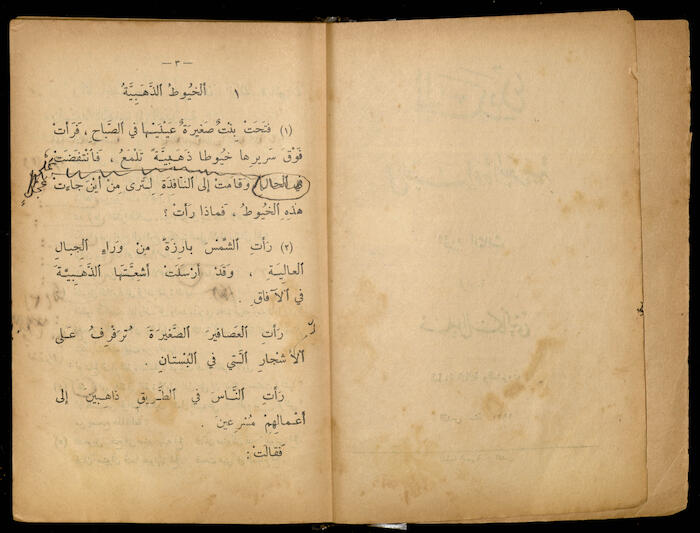 — ٣ —
١ اَلْخُيُوطُ الذَّهَبِيَّةُ
(١) فَتَحَتْ بِنْتٌ صَغِيرَةٌ عَيْنَيْهَا فِي الصَّبَاحِ ، فَرَأَتْ
فَوْقَ سَرِيرِهَا خُيُوطًا ذَهَبِيَّةً تَلْمَعُ ، فَانْتَفَضَتْ
فِي الْحَالِ وَقَامَتْ إِلَى النَّافِذَةِ لِتَرَى مِنْ أَيْنَ جَاءَتْ
هٰذِهِ الْخُيُوطُ ، فَمَاذَا رَأَتْ ؟
(٢) رَأَتِ الشَّمْسَ بَارِزَةً مِنْ وَرَاءِ الْجِبَالِ
الْعَالِيَةِ ، وَقَدْ أَرْسَلَتْ أَشِعَّتَهَا الذَّهَبِيَّةَ
فِي الْآفَاقِ .
رَأَتِ الْعَصَافِيرَ الصَّغِيرَةَ تُرَفْرِفُ عَلَى
الْأَشْجَارِ الَّتِي فِي الْبُسْتَانِ .
رَأَتِ النَّاسَ فِي الطَّرِيقِ ذَاهِبِينَ إِلَى
أَعْمَالِهِمْ مُسْرِعِينَ .
فَقَالَتْ :